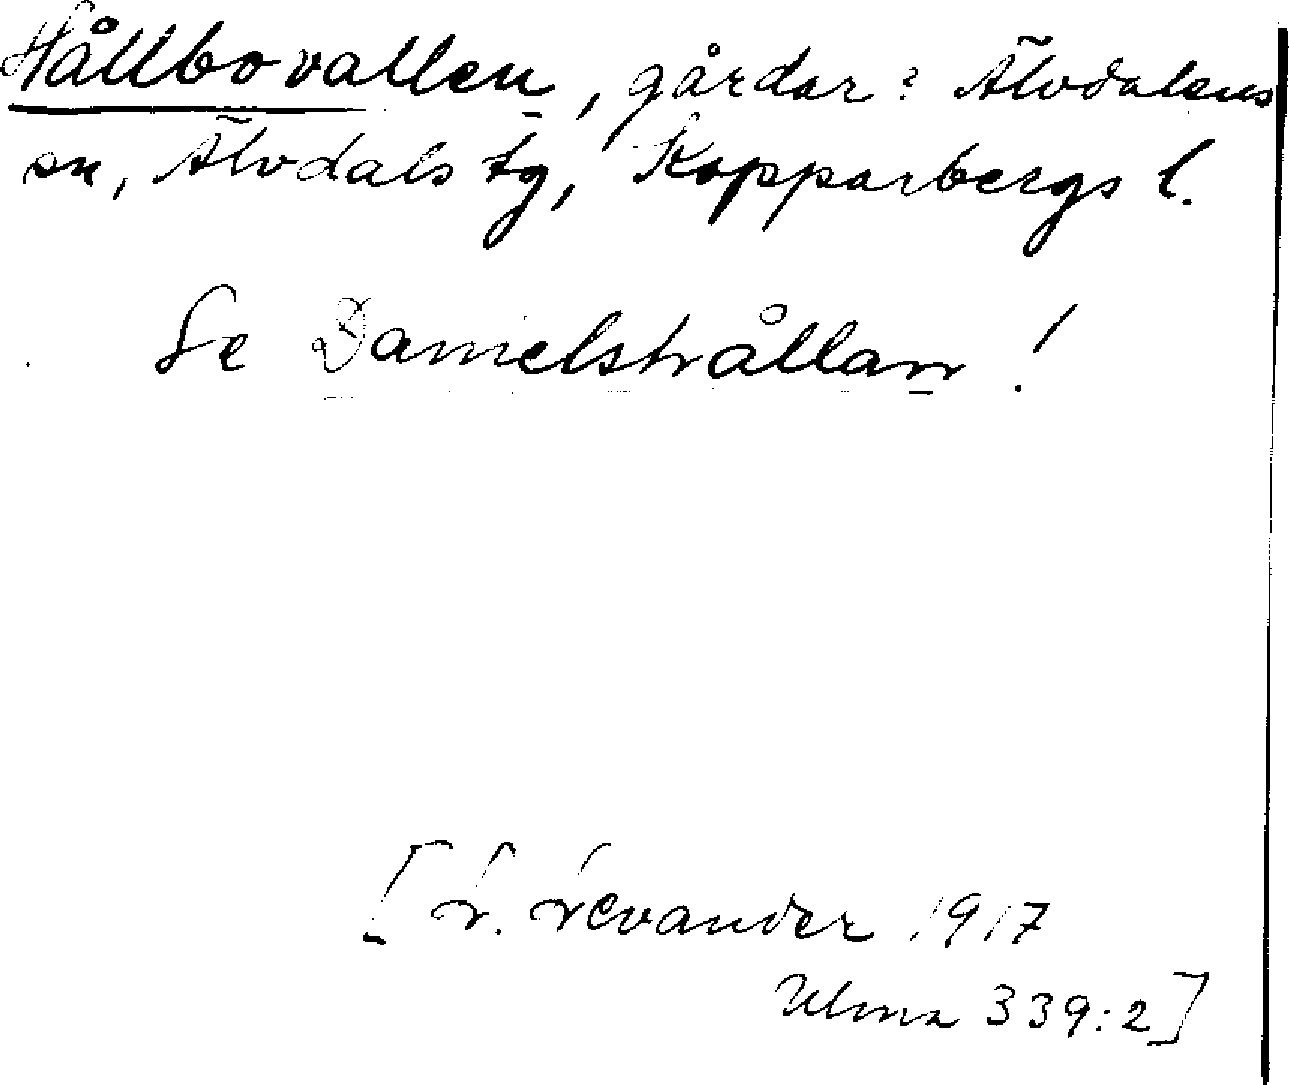 Hållbovallen, gårdar i Älvdalens
sn, Älvdals tg, Kopparbergs l.
Se Danielshållan!
[L. Levander 1917
Ulma 339:2]